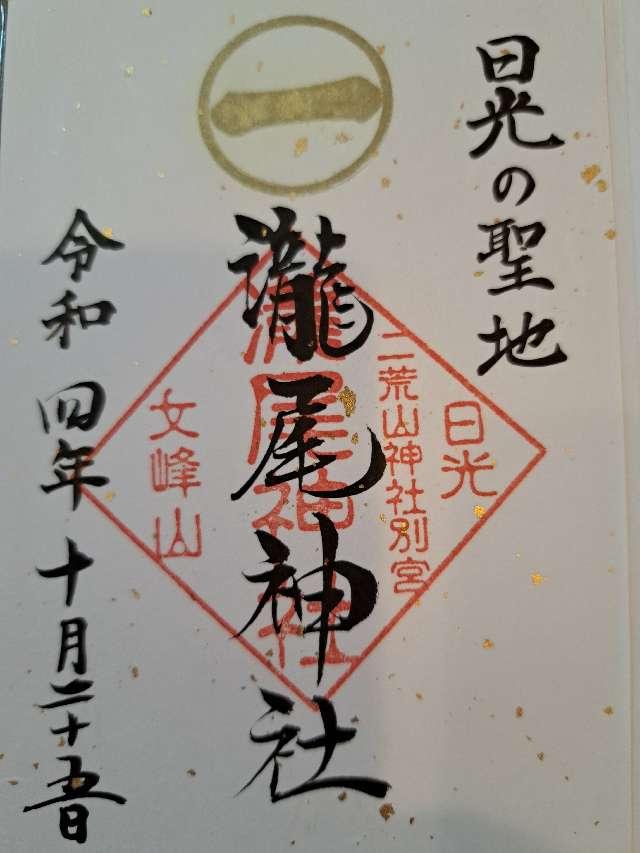 一
日光の聖地
瀧尾神社
日光
二荒山神社別宮
瀧尾神社
女峰山
令和四年十月二十五日